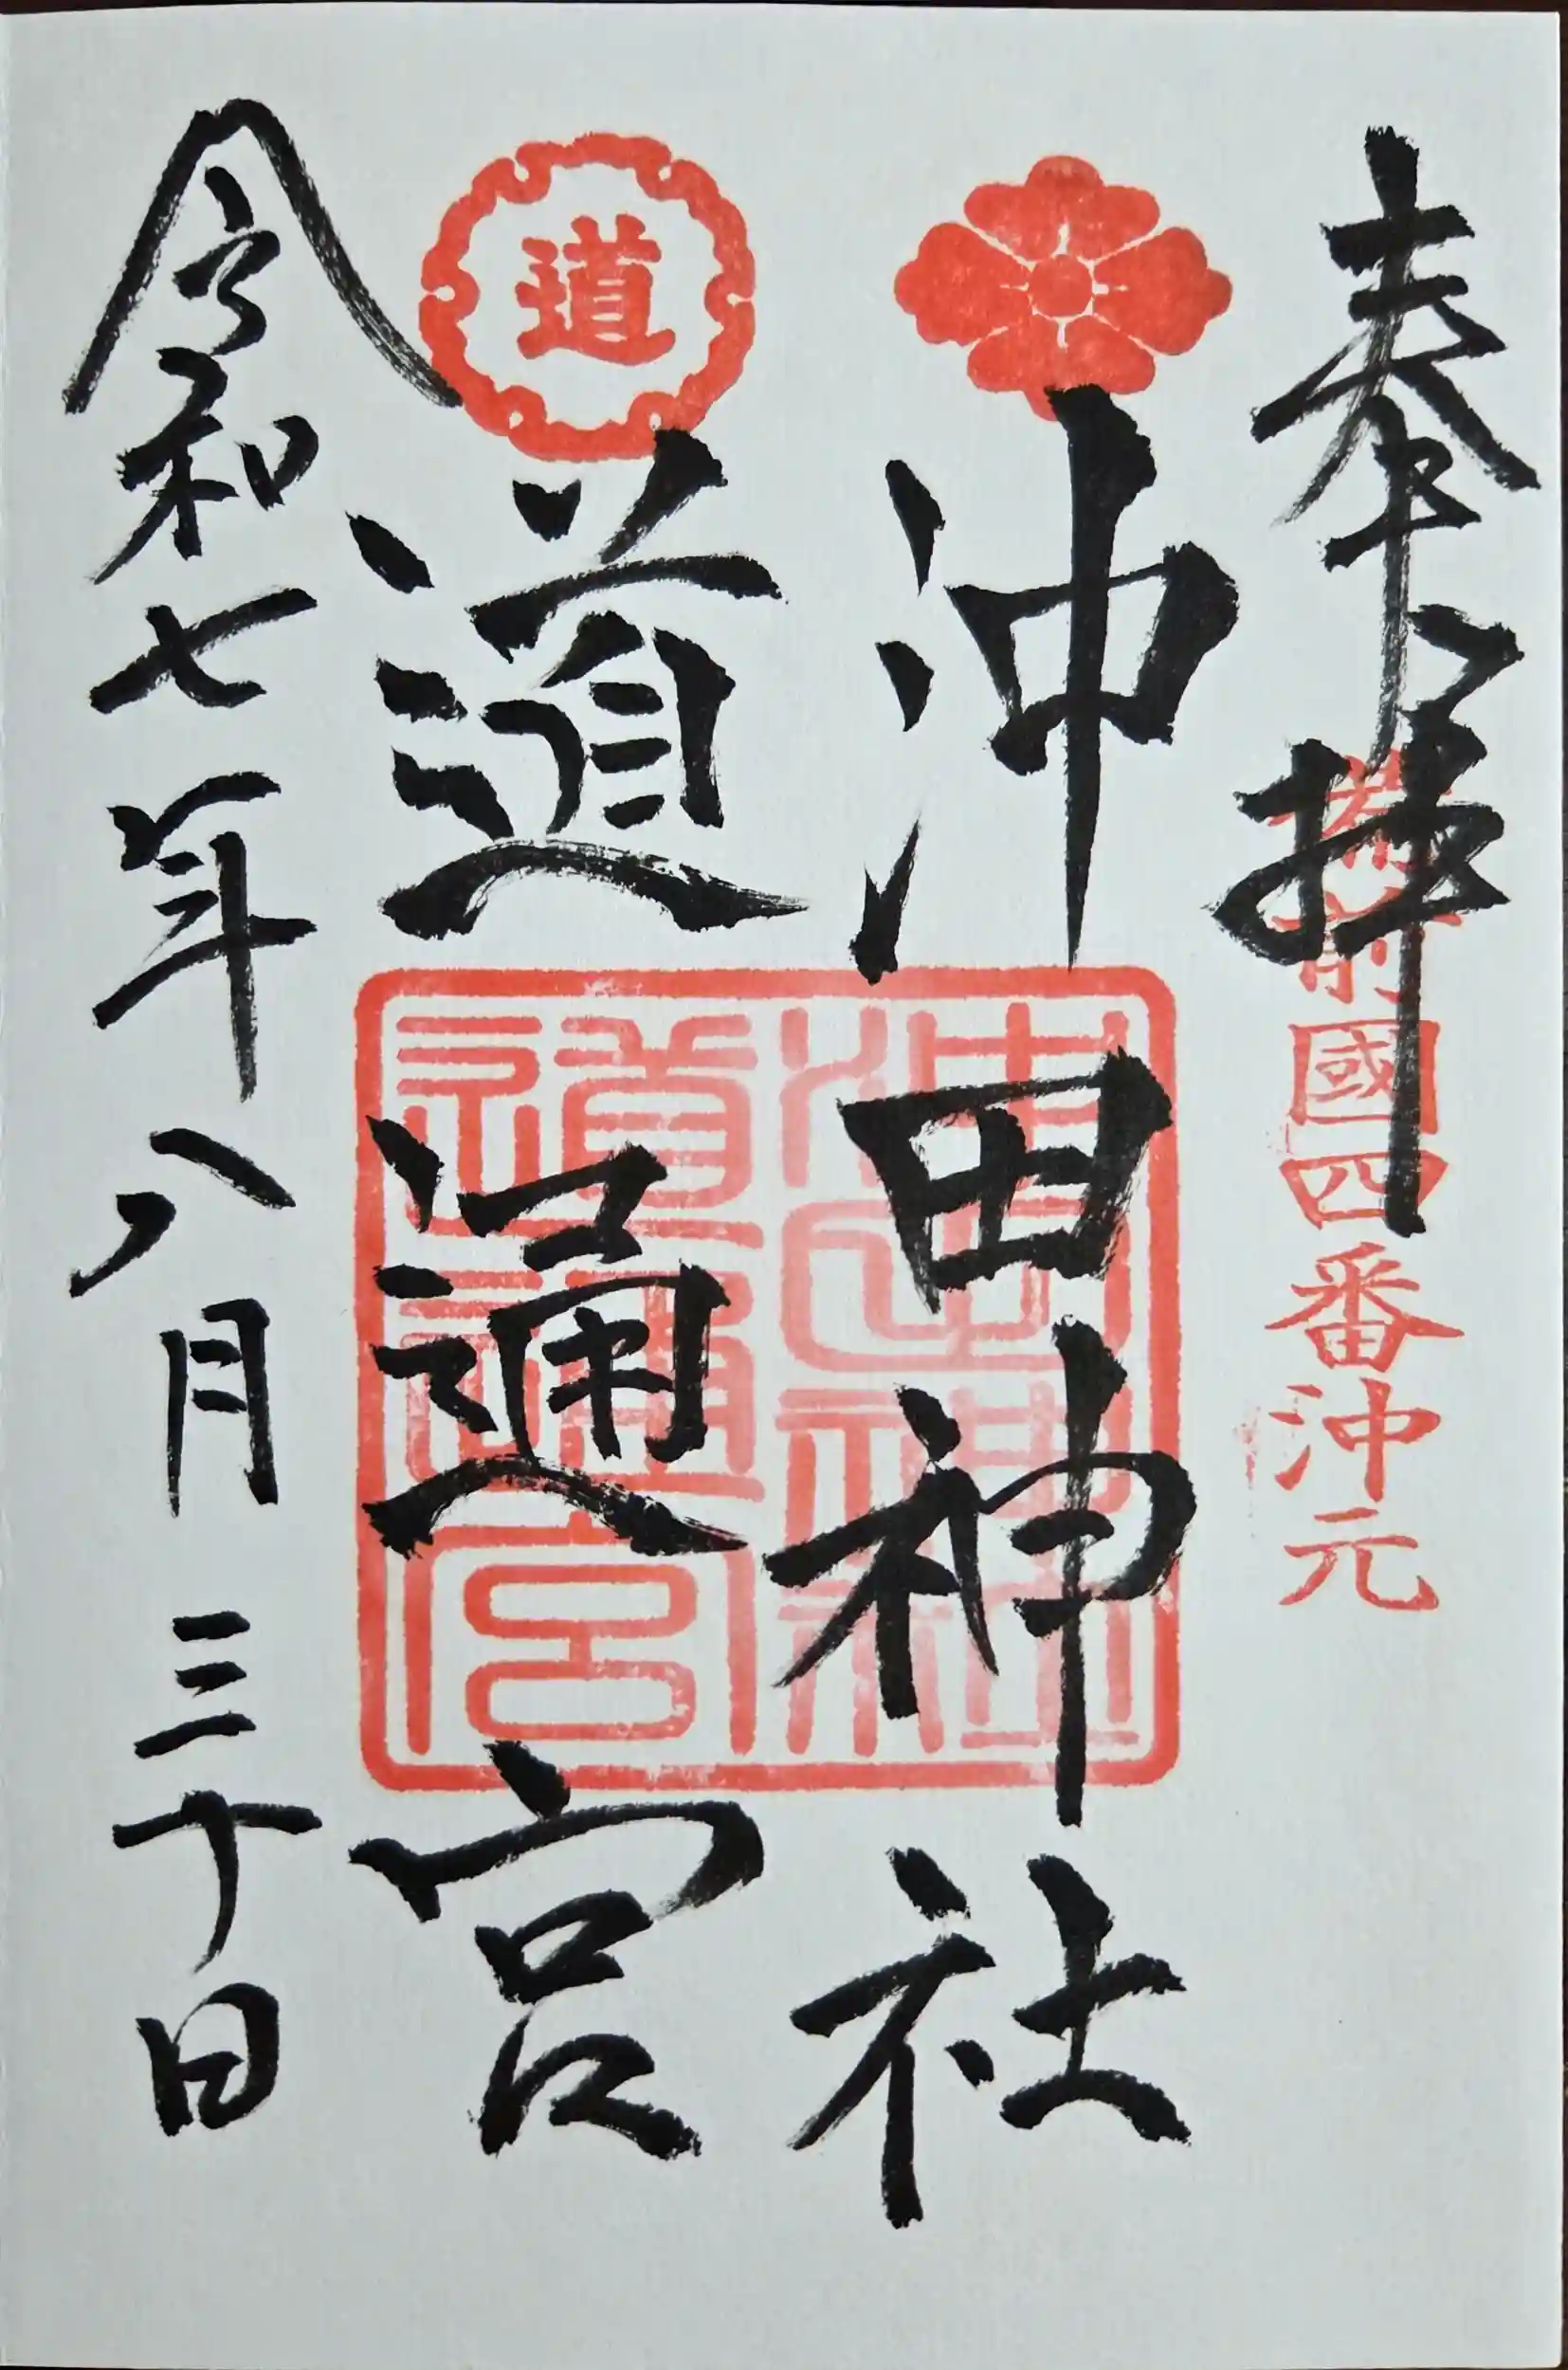 奉拝
備前國四番沖元
沖田神社
道
道通宮
沖田神社
道通宮
令和七年八月三十日